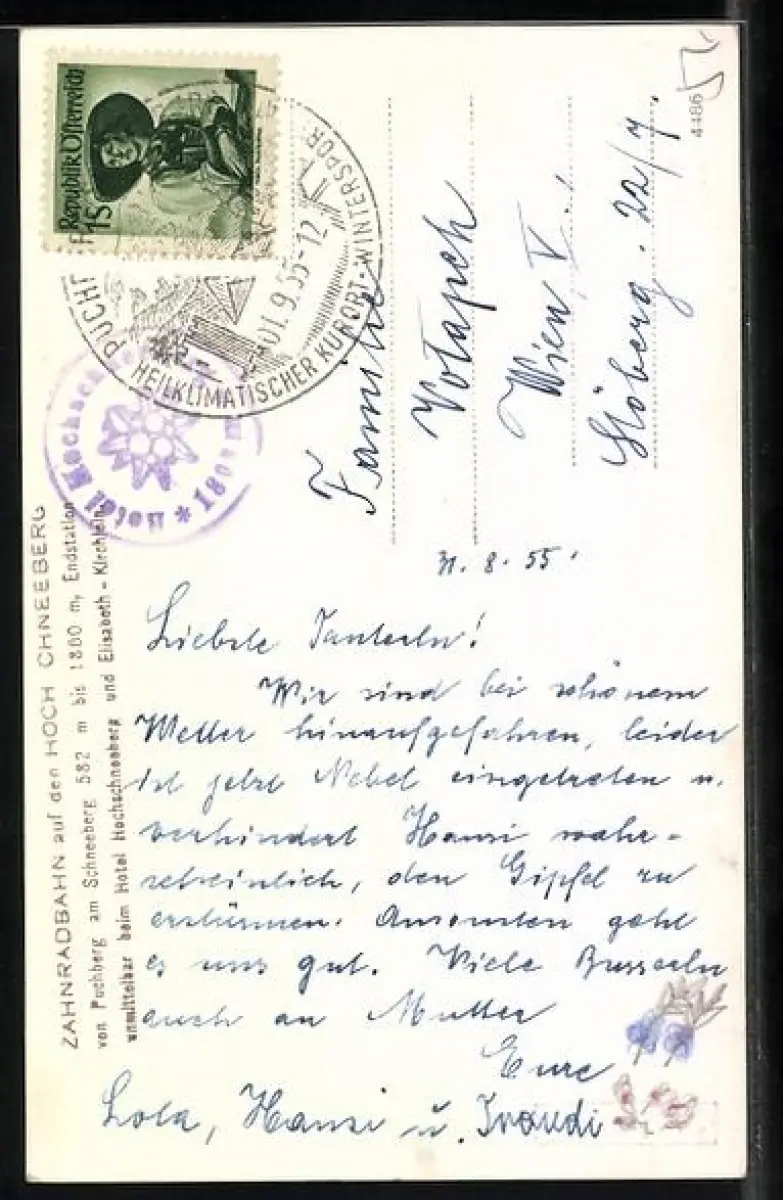 Republik Österreich
1S
PUCHB
HEILKLIMATISCHER KURORT · WINTERSPOR
01.9.55-12
Hotel Hochschnee * 1800 m
4486
Familie
Votapek
Wien V.
22/7.
ZAHNRADBAHN auf den HOCH CHNEEBERG
von Puchberg am Schneeberg 582 m bis 1800 m, Endstation
unmittelbar beim Hotel Hochschneeberg und Elisabeth-Kirchlein
31. 8. 55.
Liebste Tanterln!
Wir sind bei schönem
Wetter hinaufgefahren, leider
ist jetzt Nebel eingetreten u.
verhindert Hansi wahr-
scheinlich, den Gipfel zu
erstürmen. Ansonsten geht
es uns gut. Viele Busserln
auch an Mutter
Eure
Lola, Hansi u. Traudi